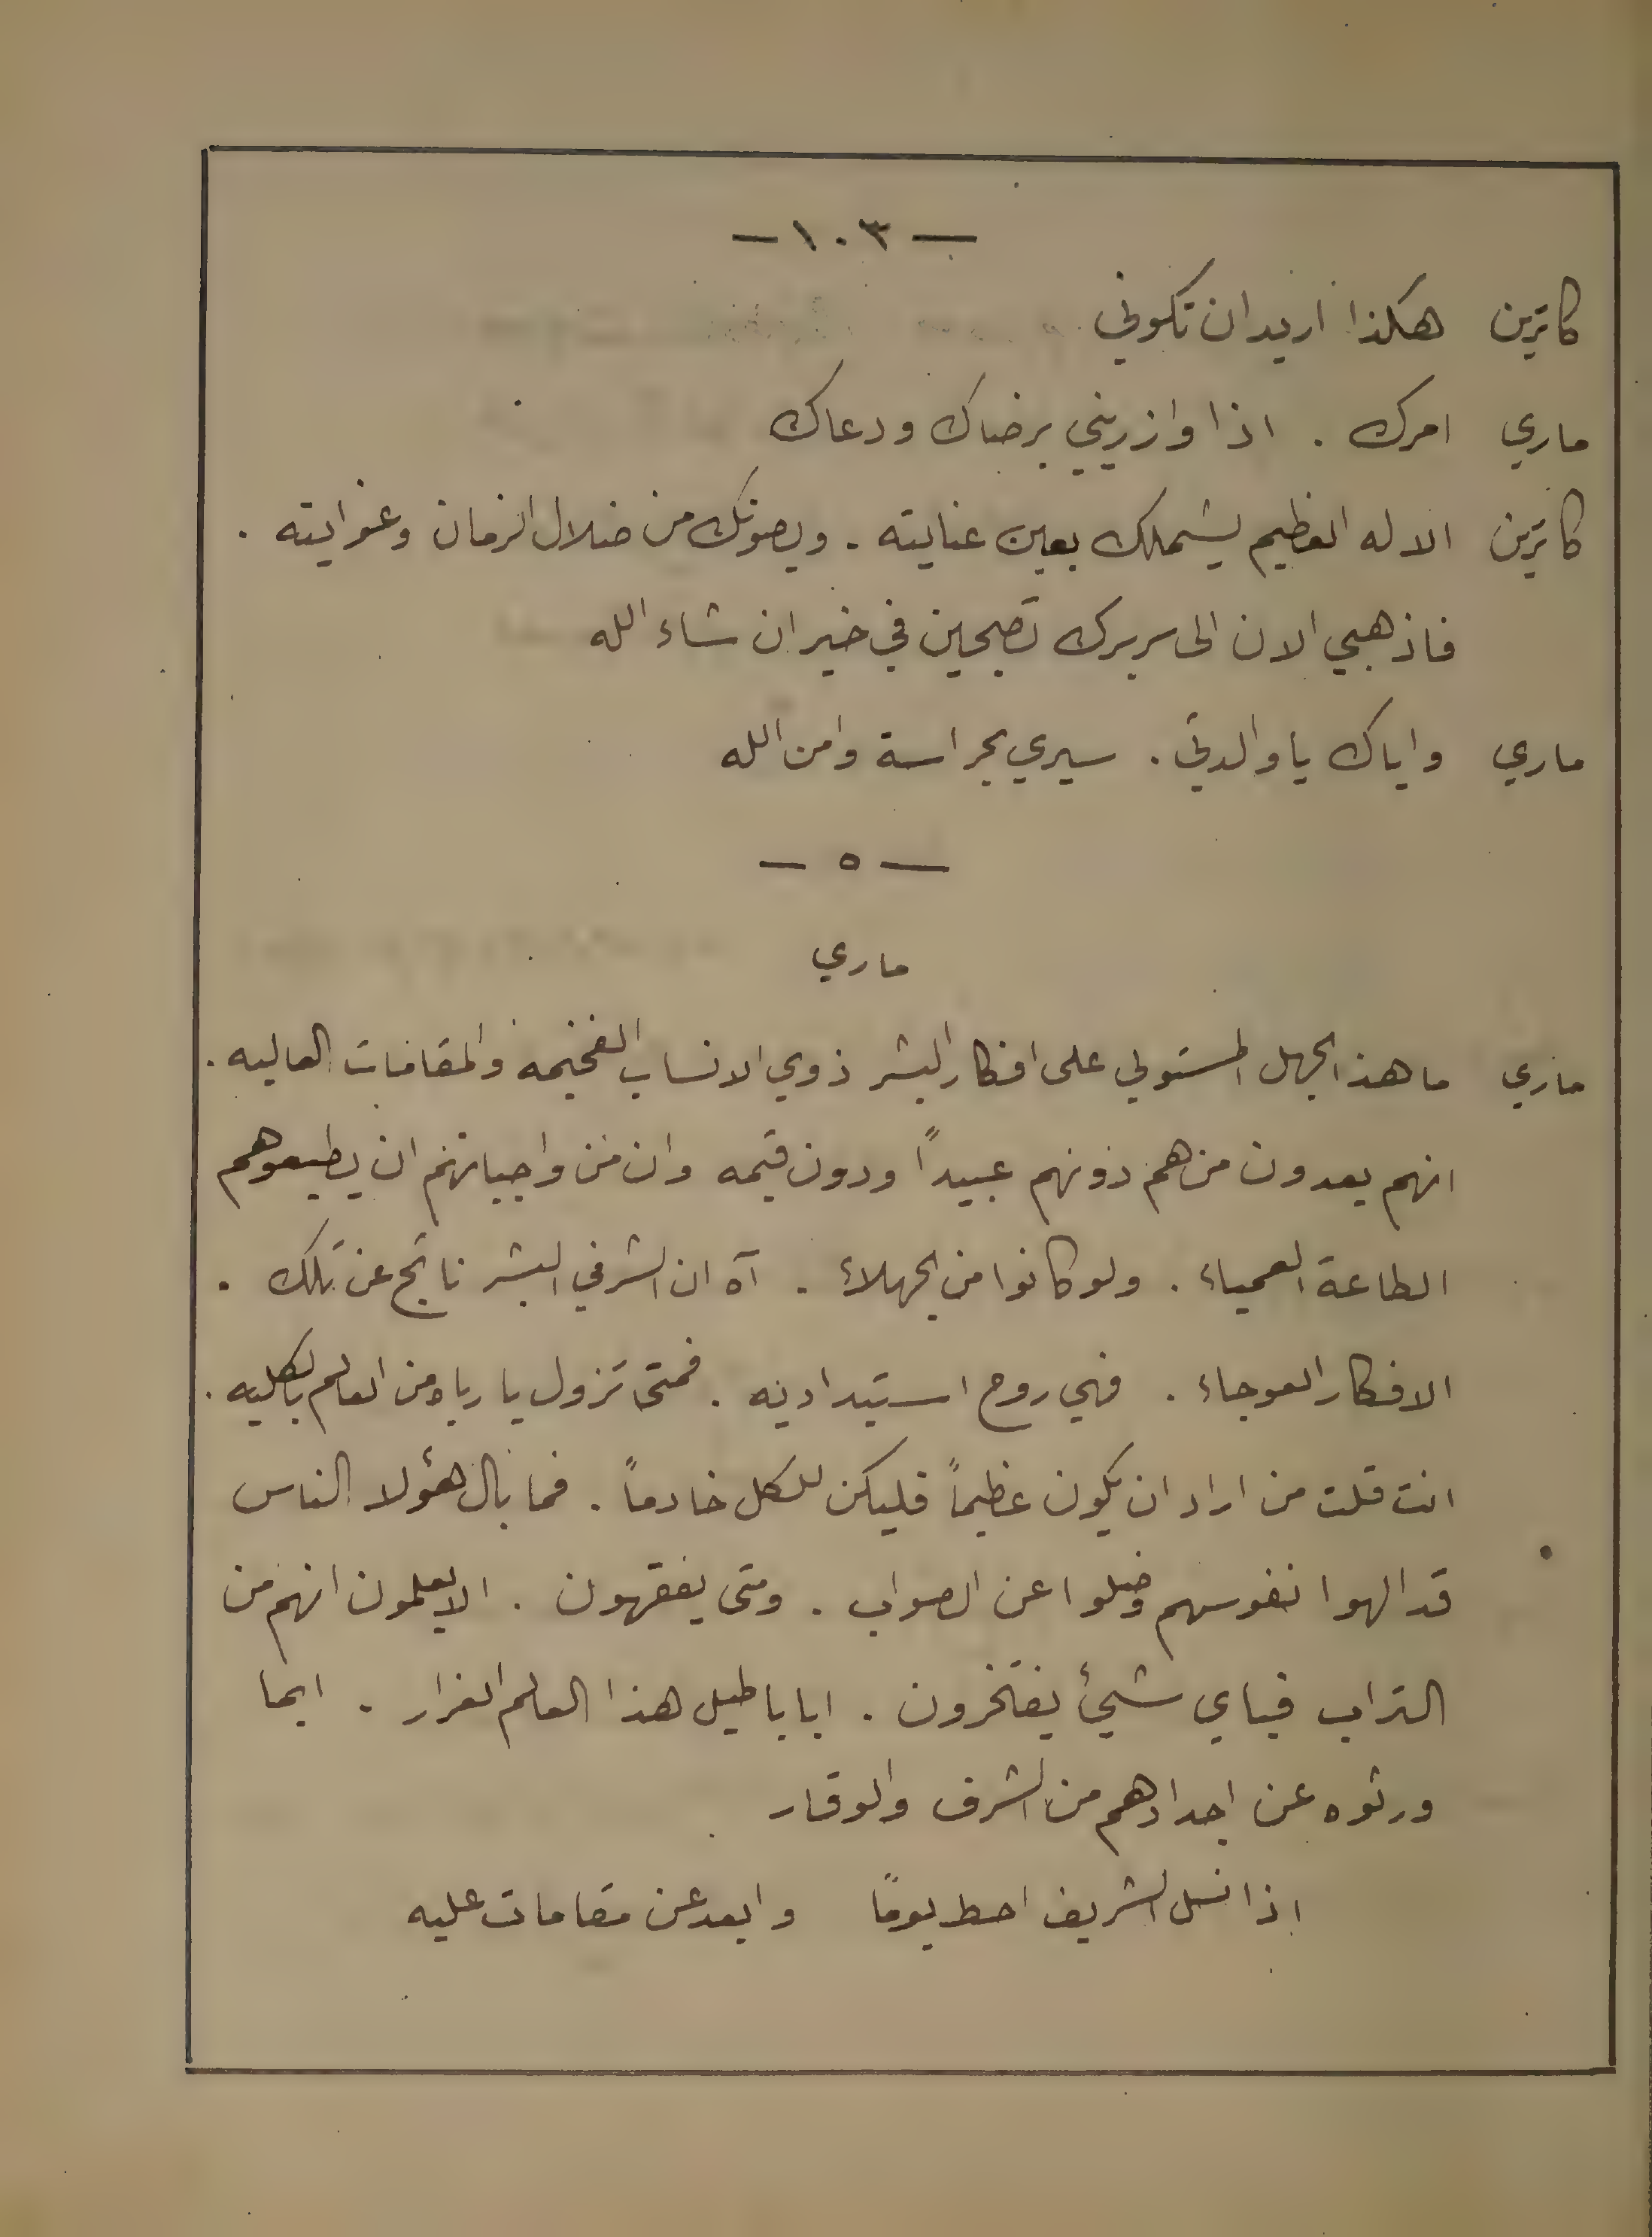 — ١٠٣ —
كاترين هكذا اريد ان تكوني
ماري امرك . اذا وازريني برضاك ودعاك
كاترين الاله العظيم يشملك بعين عنايته . ويصونك من ضلال الزمان وغوايته .
فاذهبي الان الى سريرك تصبحين في خير ان شاء الله
ماري واياك يا والدتي . سيري بحراسة وامن الله
— ٥ —
ماري
ماري ما هذا الجهل المستولي على افكار البشر ذوي الانساب الفخيمه والمقامات العاليه .
انهم يعدون من هم دونهم عبيداً ودون قيمه وان من واجباتهم ان يطيعوهم
الطاعة العمياء . ولو كانوا من الجهلاء . آه ان الشر في البشر ناتج عن تلك .
الافكار العوجاء . فهي روح استبداديه . فمتى تزول يا رباه من العالم بالكليه .
انت قلت من اراد ان يكون عظيماً فليكن للكل خادماً . فما بال هؤلا الناس
قد الهوا نفوسهم وضلوا عن الصواب . ومتى يفقهون . الا يعلمون انهم من
التراب فباي شيئ يفتخرون . ابا باطيل هذا العالم الغرار . ابما
ورثوه عن اجدادهم من الشرف والوقار
اذا نسل الشريف احط يومًا وابعد عن مقامات عليه